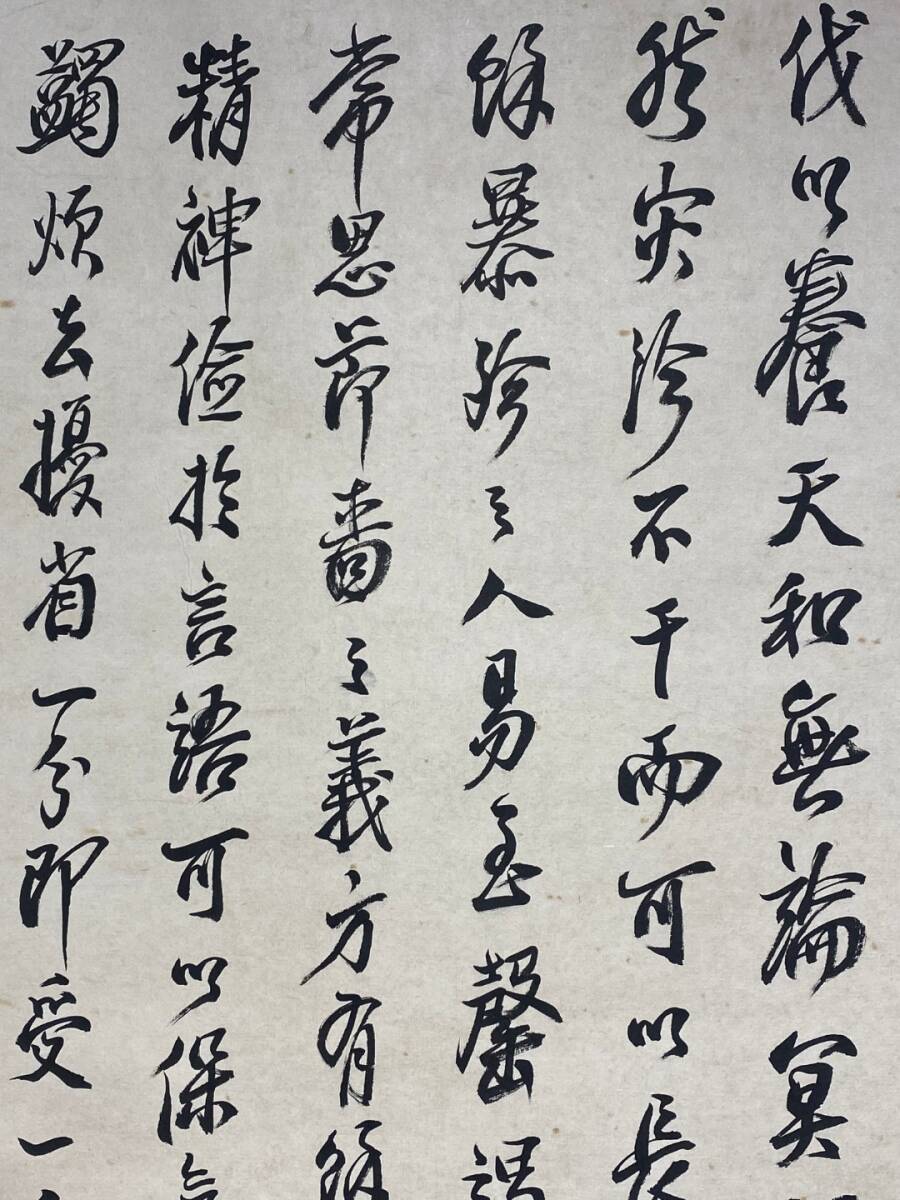 伐以養天和無論冥
然災沴不干而可以長
餘暴殄之人易至罄
常思節嗇之義方有餘
精神儉於言語可以保氣
蠲煩去擾省一分即受一